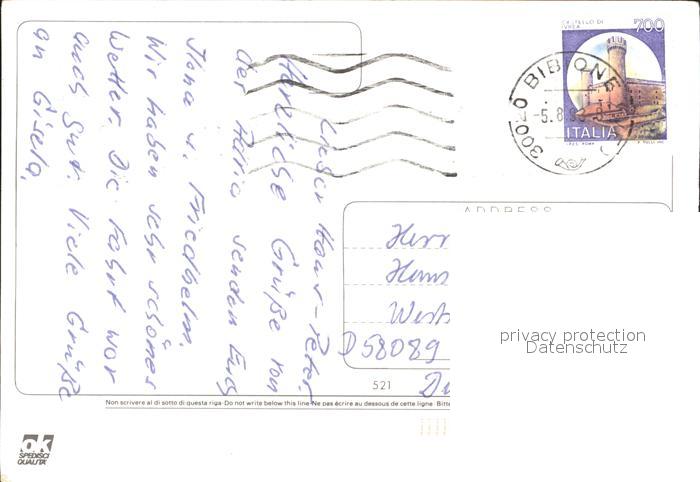 Lieber Hans-Peter,
Herzliche Grüße von
der Adria senden Euch
Jana u. Friedhelm.
Wir haben sehr schönes
Wetter. Die Fahrt war
auch gut. Viele Grüße
an Gisela.
CASTELLO DI
IVREA
700
ITALIA
I.P.Z.S. ROMA
30020 BIBIONE
-5.8.9
ADDRESS
Herr
Hans
West
D 58089
521
Non scrivere al di sotto di questa riga-Do not write below this line-Ne pas écrire au dessous de cette ligne. Bitte
privacy protection
Datenschutz
ok
SPEDISCI
QUALITÀ